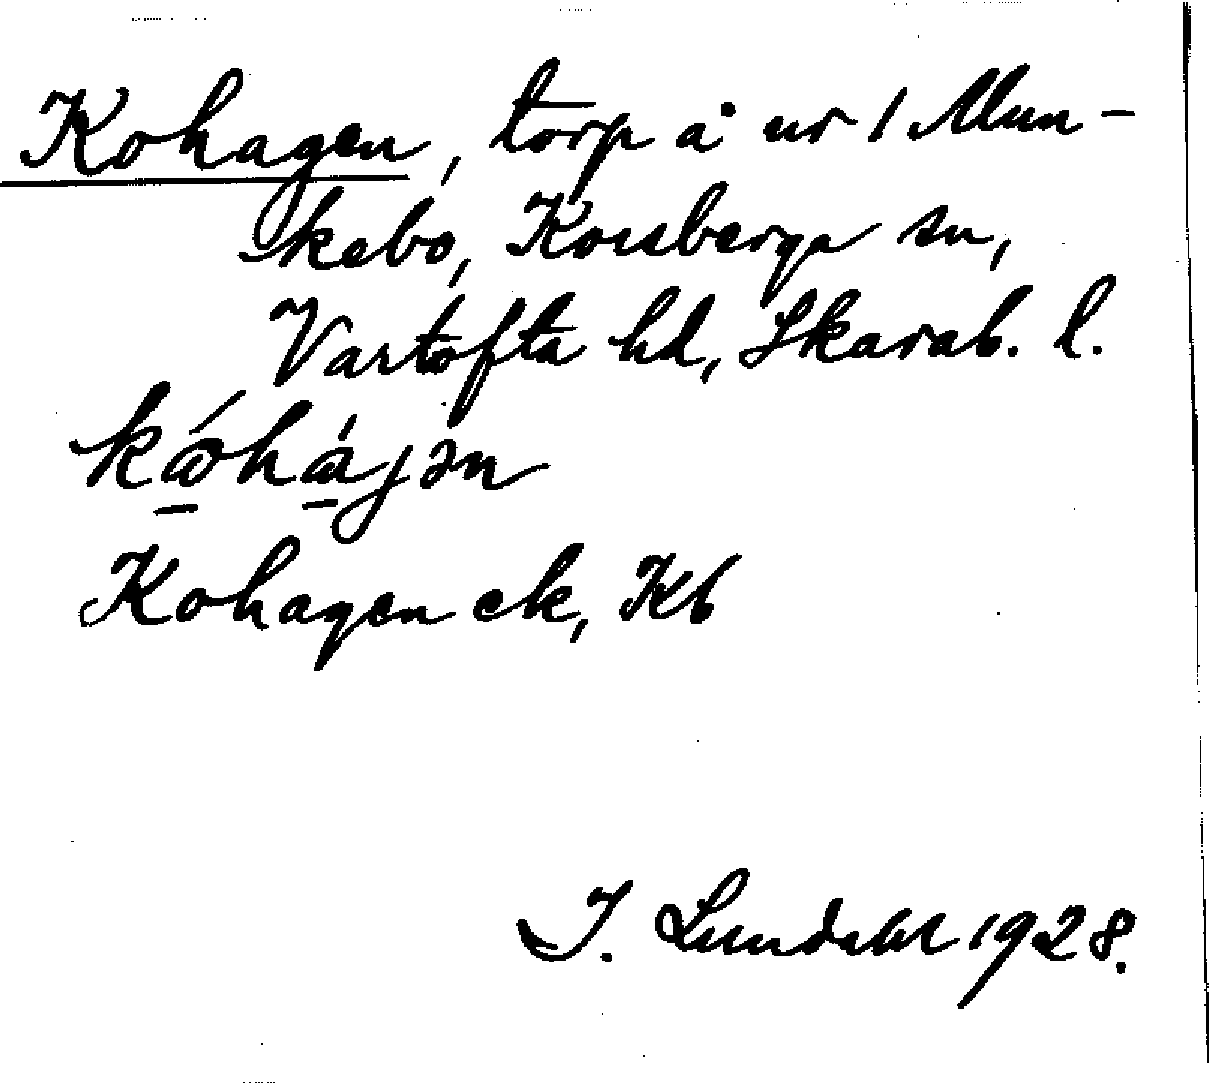 Kohagen, torp å nr 1 Mun-
kebo, Korsberga sn,
Vartofta hd, Skarab. l.
kώ̱hά̱jən
Kohagen ek, Kb
I. Lundahl 1928.